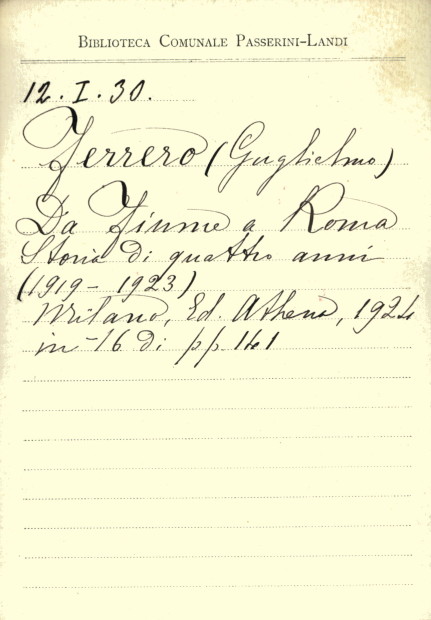 BIBLIOTECA COMUNALE PASSERINI-LANDI
12. I. 30.
Ferrero (Guglielmo)
Da Fiume a Roma
Storia di quattro anni
(1919 - 1923)
Milano, Ed. Athena, 1924
in-16 di pp. 141